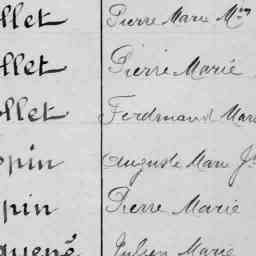 llet Pierre Marie Min
llet Pierre Marie
llet Ferdinand Mari
pin Auguste Marie J
pin Pierre Marie
quené Julien Marie